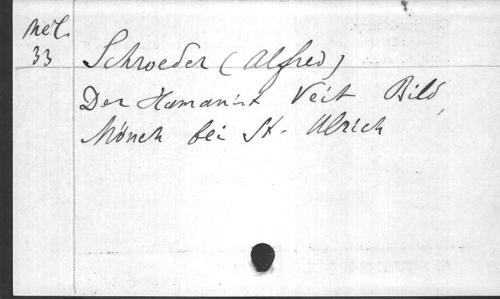 Mél.
33
Schroeder (Alfred)
Der Humanist Veit Bild,
Mönch bei St. Ulrich